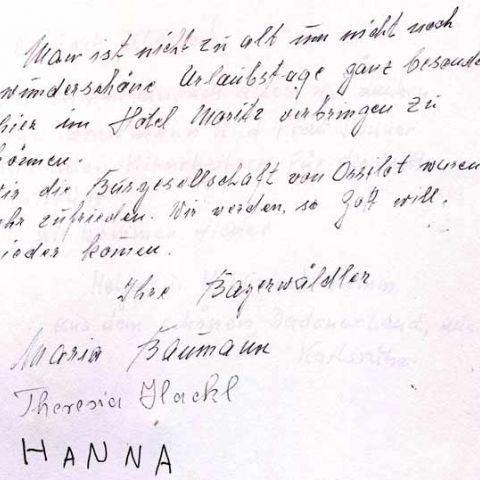 Man ist nicht zu alt um nicht noch
wunderschöne Urlaubstage ganz besonde
hier im Hotel Moritz verbringen zu
können.
Wir die Busgesellschaft von waren
ehr zufrieden. Wir werden, so Gott will,
ieder kommen.
Ihre Bayerwäldler
Maria Baumann
Theresia Hackl
HANNA